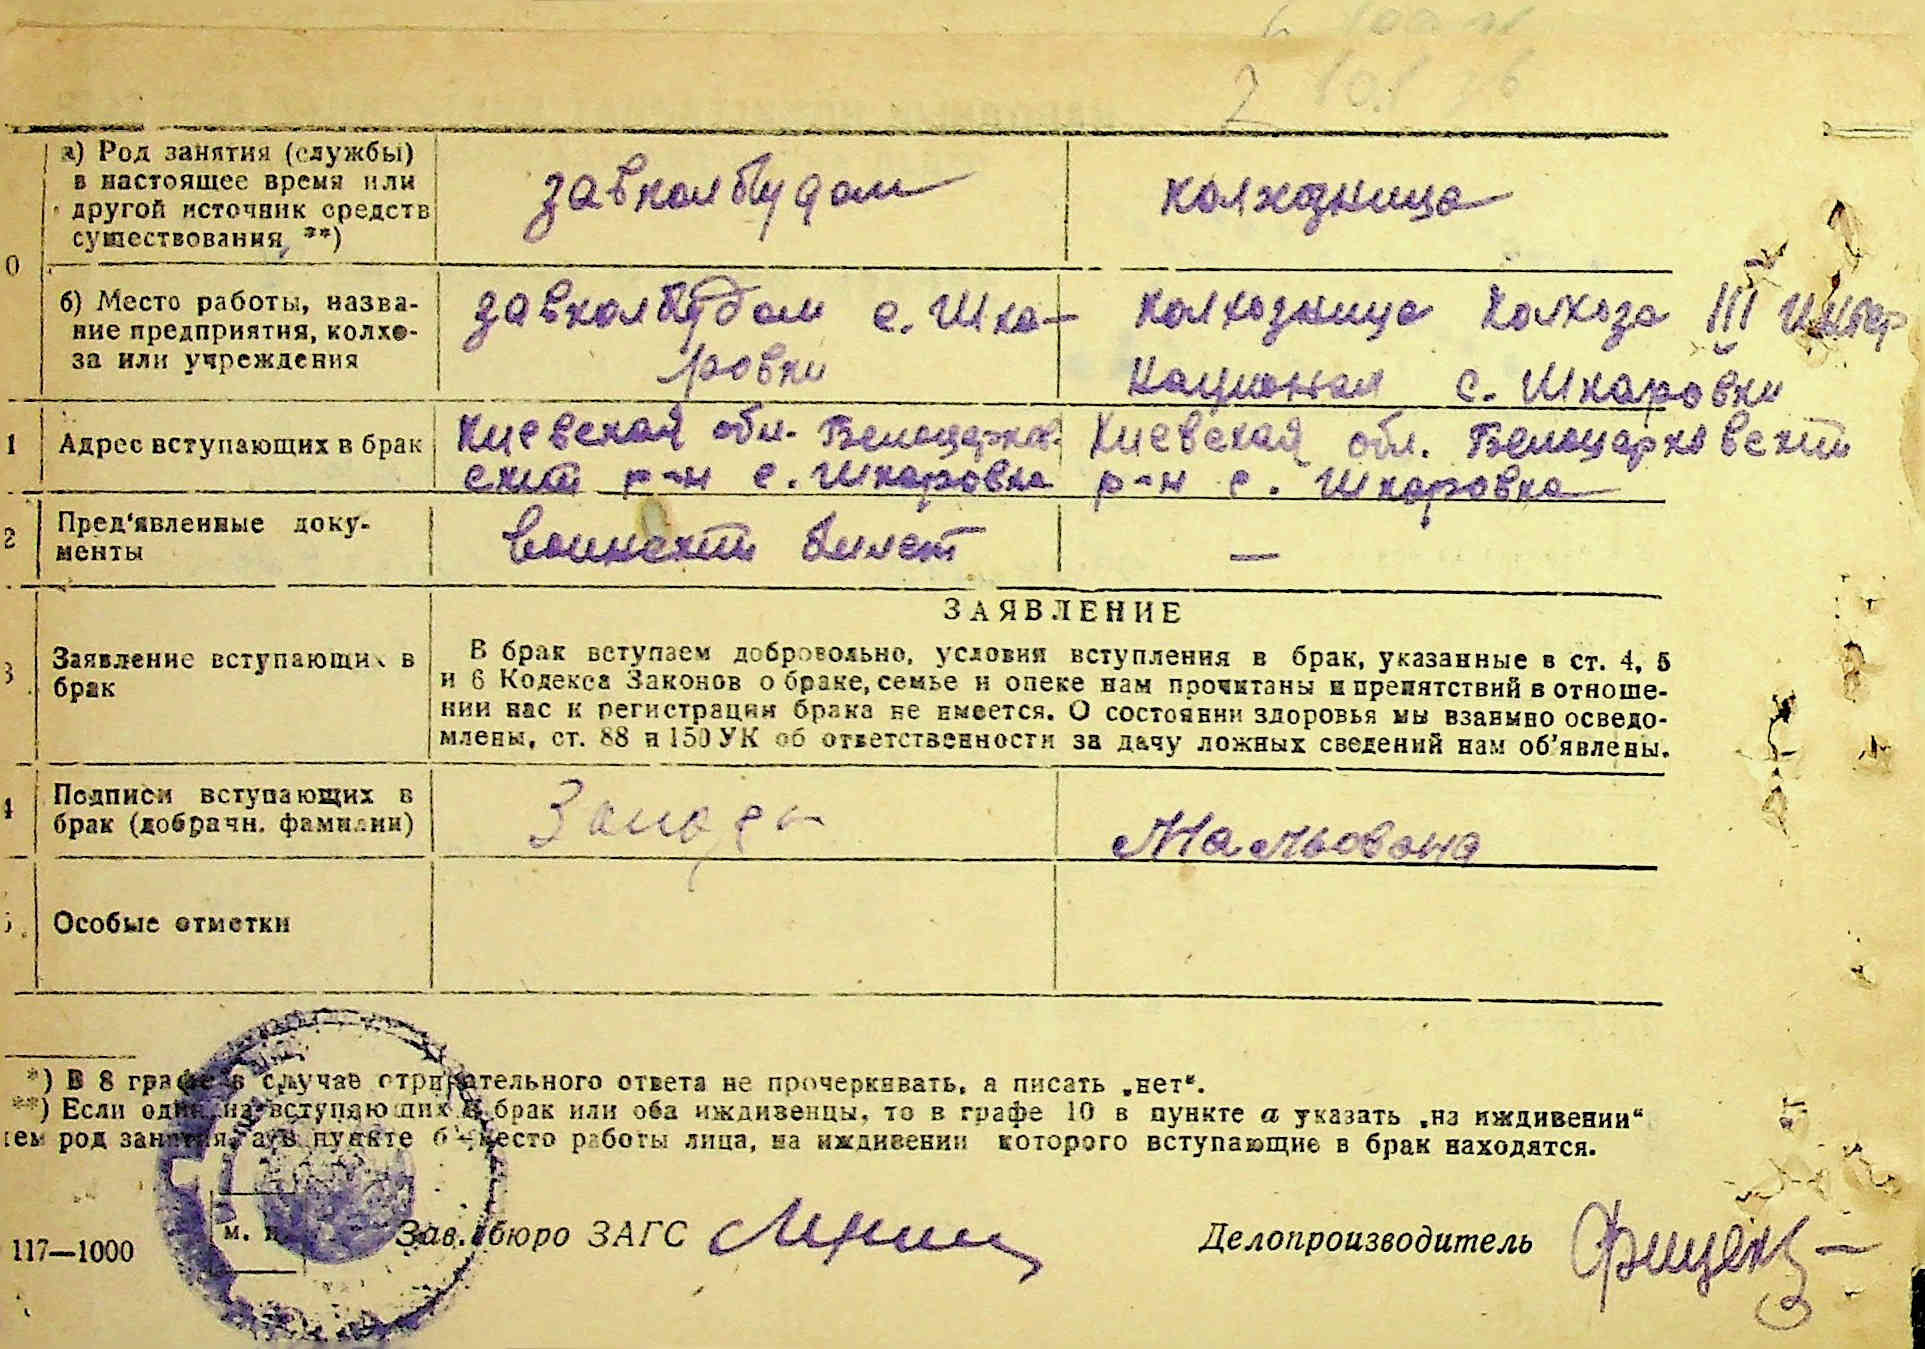 а) Род занятия (службы)
в настоящее время или
другой источник средств
существования **)
завколбудом
колхозница
0
б) Место работы, назва-
ние предприятия, колхо-
за или учреждения
завколбудом с. Шка-
ровки
колхозница колхоза III Интер
национал с. Шкаровки
1
Адрес вступающих в брак
Киевская обл. Белоцерков
ский р-н с. Шкаровка
Киевская обл. Белоцерковский
р-н с. Шкаровка
2
Пред'явленные доку-
менты
воинский билет
—
3
Заявление вступающих в
брак
ЗАЯВЛЕНИЕ
В брак вступаем добровольно, условия вступления в брак, указанные в ст. 4, 5
и 6 Кодекса Законов о браке, семье и опеке нам прочитаны и препятствий в отноше-
нии нас к регистрации брака не имеется. О состоянии здоровья мы взаимно осведо-
млены, ст. 88 и 150 УК об ответственности за дачу ложных сведений нам об'явлены.
4
Подписи вступающих в
брак (добрачн. фамилии)
Мальована
5
Особые отметки
*) В 8 графе в случае отрицательного ответа не прочеркивать, а писать „нет“.
**) Если один из вступающих в брак или оба иждивенцы, то в графе 10 в пункте а указать „на иждивении“
род занятия, а в пункте б—место работы лица, на иждивении которого вступающие в брак находятся.
м. п.
117—1000
Зав. бюро ЗАГС
Делопроизводитель